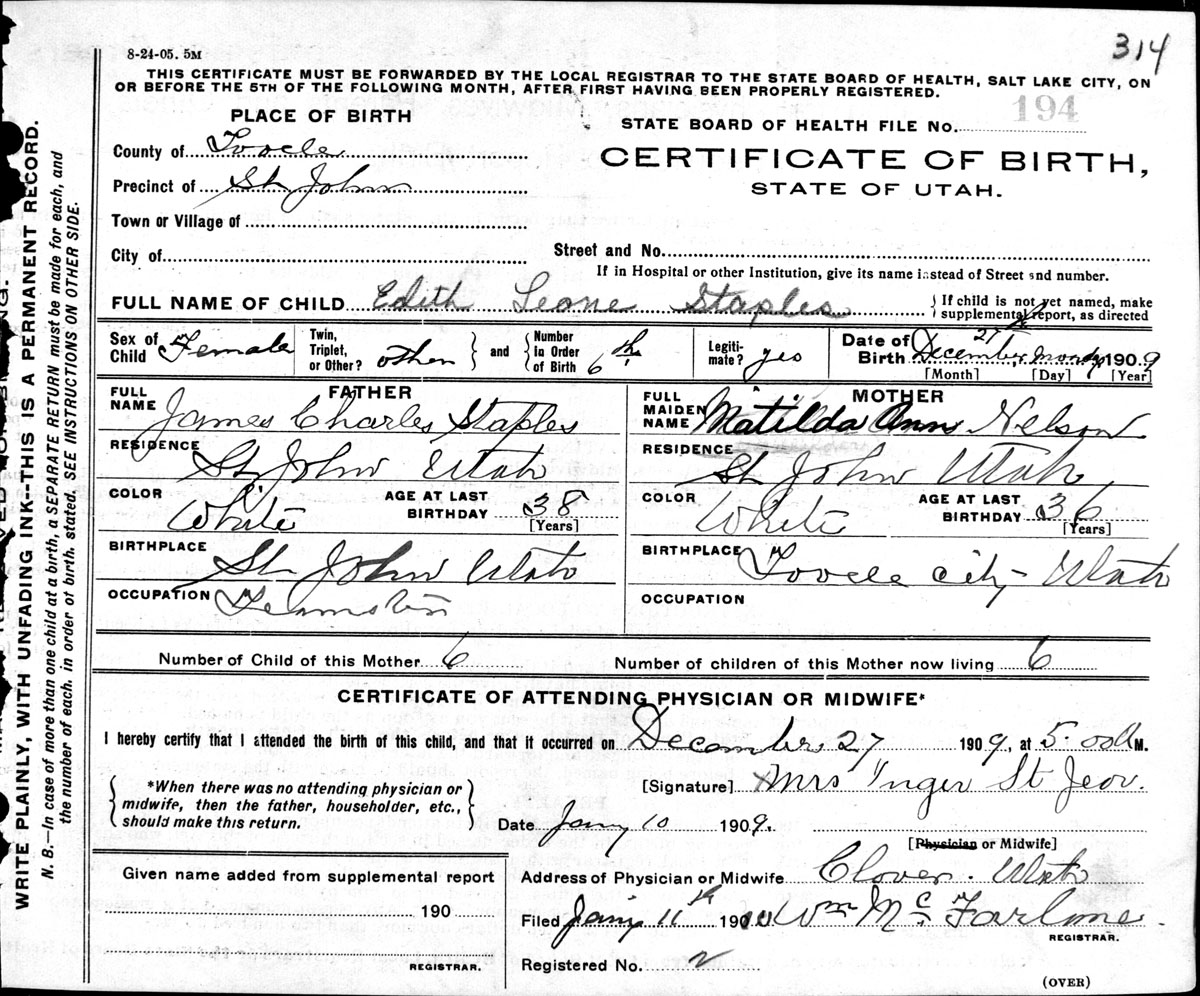 314
8-24-05. 5M
THIS CERTIFICATE MUST BE FORWARDED BY THE LOCAL REGISTRAR TO THE STATE BOARD OF HEALTH, SALT LAKE CITY, ON
OR BEFORE THE 5TH OF THE FOLLOWING MONTH, AFTER FIRST HAVING BEEN PROPERLY REGISTERED.
PLACE OF BIRTH
County of Tooele
Precinct of St John
Town or Village of
City of
STATE BOARD OF HEALTH FILE No. 194
CERTIFICATE OF BIRTH,
STATE OF UTAH.
Street and No.
If in Hospital or other Institution, give its name instead of Street and number.
FULL NAME OF CHILD Edith Leone Staples } If child is not yet named, make supplemental report, as directed
Sex of Child Female Twin, Triplet, or Other? other } and { Number in Order of Birth 6th Legiti-mate? yes Date of Birth December 27 Monday 1909
[Month] [Day] [Year]
FATHER
FULL NAME James Charles Staples
RESIDENCE St John Utah
COLOR White AGE AT LAST BIRTHDAY 38
[Years]
BIRTHPLACE St John Utah
OCCUPATION Teamster
MOTHER
FULL MAIDEN NAME Matilda Ann Nelson
RESIDENCE St John Utah
COLOR White AGE AT LAST BIRTHDAY 36
[Years]
BIRTHPLACE Tooele City Utah
OCCUPATION
Number of Child of this Mother 6 Number of children of this Mother now living 6
CERTIFICATE OF ATTENDING PHYSICIAN OR MIDWIFE*
I hereby certify that I attended the birth of this child, and that it occurred on December 27 1909, at 5.00 A M.
{ *When there was no attending physician or midwife, then the father, householder, etc., should make this return. }
[Signature] Mrs Inger St Jeor.
Date Jany 10 1909.
[Physician or Midwife]
Given name added from supplemental report
190
REGISTRAR.
Address of Physician or Midwife Clover. Utah
Filed Jany 11th 1910 Wm McFarlane.
REGISTRAR.
Registered No. 2
(OVER)
WRITE PLAINLY, WITH UNFADING INK--THIS IS A PERMANENT RECORD.
N. B.—In case of more than one child at a birth, a SEPARATE RETURN must be made for each, and
the number of each, in order of birth, stated. SEE INSTRUCTIONS ON OTHER SIDE.